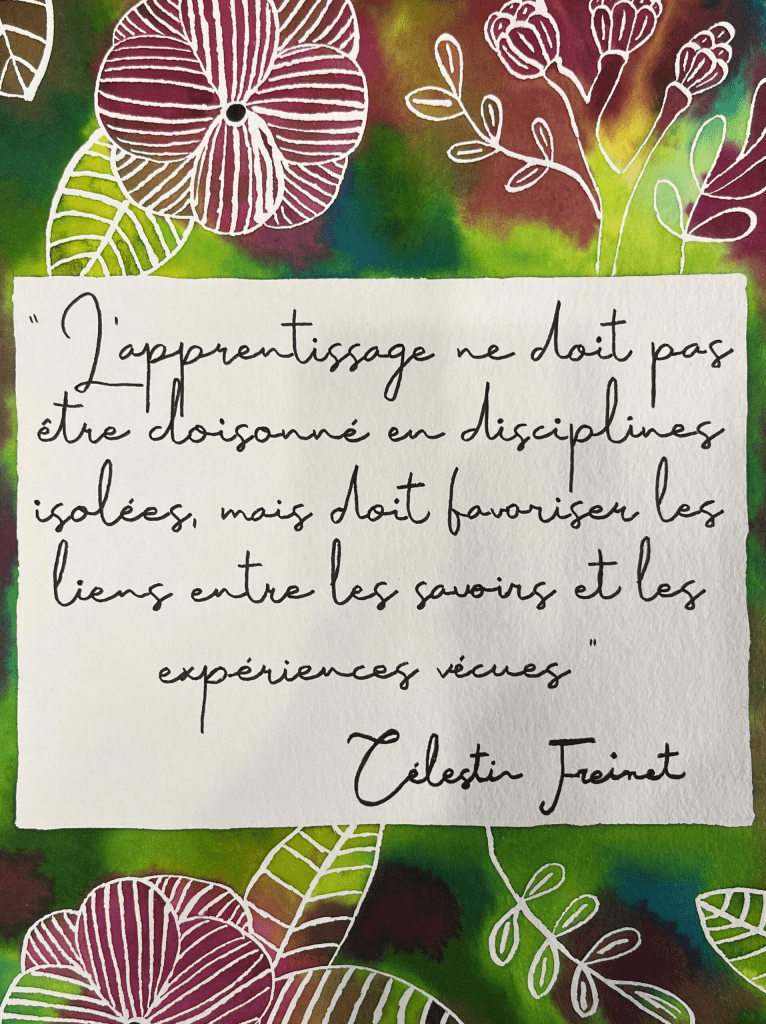 " L'apprentissage ne doit pas
être cloisonné en disciplines
isolées, mais doit favoriser les
liens entre les savoirs et les
expériences vécues "
Célestin Freinet